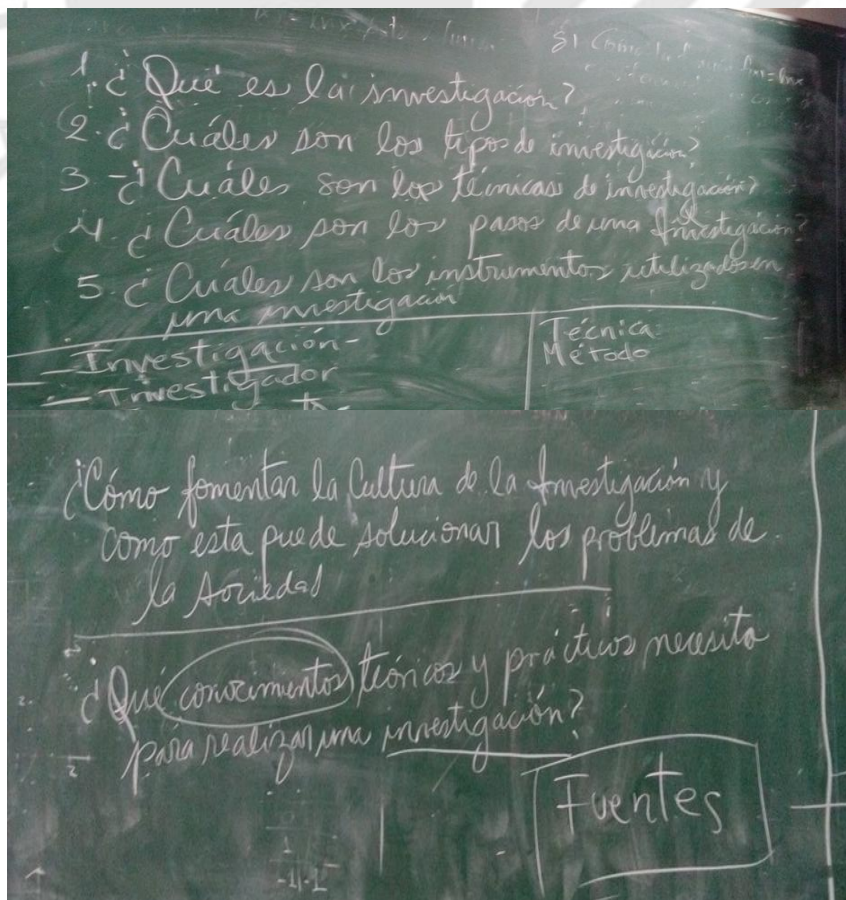 1. ¿Qué es la investigación?
2. ¿Cuáles son los tipos de investigación?
3 - ¿Cuáles son las técnicas de investigación?
4. ¿Cuáles son los pasos de una Investigación?
5. ¿Cuáles son los instrumentos utilizados en
una investigación
Investigación-
Investigador
Técnica
Método
¿Cómo fomentar la Cultura de la Investigación y
como esta puede solucionar los problemas de
la sociedad
¿Qué conocimientos teóricos y prácticos necesito
para realizar una investigación?
Fuentes